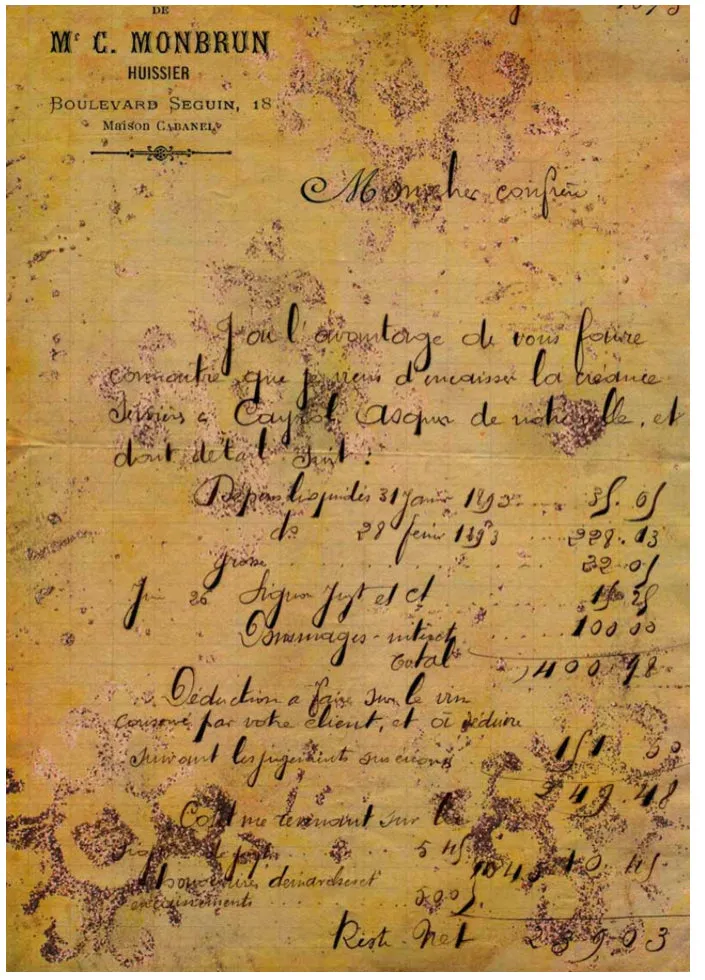 DE
Me C. MONBRUN
HUISSIER
BOULEVARD SEGUIN, 18
Maison CABANEL
Mon cher confrère
J'ai l'avantage de vous faire
connaitre que je viens d'encaisser la créance
Cayrol de notre ville, et
dont détail suit :
Dépens liquidés 31 Janvr 1893 35.05
do 28 février 1893 228.13
grosse 32.05
Juin 26 Signon Jugt et ct
Dommages-intérêts 100 00
total 400.98
Déduction a faire sur le vin
consommé par votre client, et à déduire
suivant les jugements susénoncés 151 50
249.48
Coût me revenant sur la
5 45 10.45
démarches et
encaissements 5 00
Reste Net 239 03